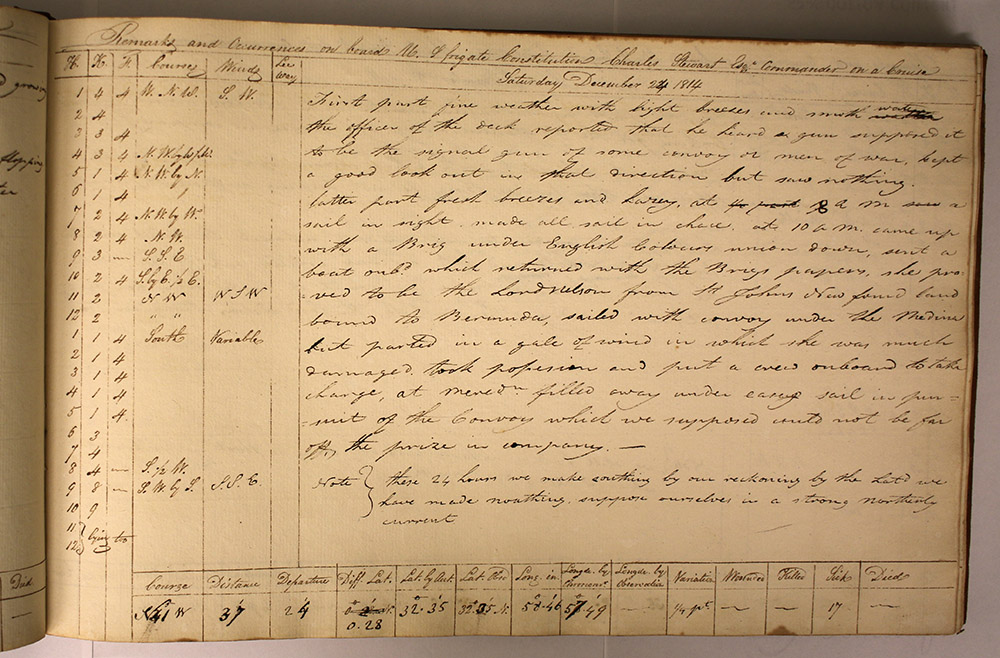 Remarks and Occurrences on board U. S frigate Constitution Charles Stewart Esqr Commander on a Cruise
H. K. F. Courses Winds Lee way
Saturday December 24 1814
1 4 4 W. N. W. S. W.
2 4
3 3 4
4 3 4
5 1 4 N. W. by N.
6 1 4 "
7 2 4 N. W by W.
8 2 4 N. W.
9 3 — S. S. E
10 2 4 S. by E. ½ E.
11 2 N W W S W
12 2 " "
1 1 4 South Variable
2 1 4
3 1 4
4 1 4
5 1 4
6 3
7 4
8 4 — S. ½ W.
9 8 — S. W. by S. S. S. E.
10 9
11
12 } lying to
First part fine weather with light breezes and smooth water
the officer of the deck reported that he heard a gun supposed it
to be the signal gun of some convoy or men of war, kept
a good look out in that direction but saw nothing.
latter part fresh breezes and hazey, at 8 a m saw a
sail in sight made all sail in chace, at 10 a m. came up
with a Brig under English Colours union down, sent a
boat onbd which returned with the Brigs papers, she pro-
-ved to be the Lord Nelson from St Johns New found land
bound to Bermuda, sailed with convoy under the Medina
but parted in a gale of wind in which she was much
damaged. took possession and put a crew onboard to take
charge, at mered.n filled away under easey sail in pur-
-suit of the Convoy which we supposed could not be far
off, the prize in company. —
Note } these 24 hours we make soothing by our reckoning by the Latd we
have made noathing. suppose ourselves in a strong northerly
current
Course Distance Departure Diff. Lat. Lat. by Act. Lat. Obs Long. in. Longde. by Chronomr. Longde. by Observation Variation Wounded Killed Sick Died
N 41 W 37 24 0.28 32.35 32.35 N. 58.46 57.49 — ¼ pt. — — 17 —
Died